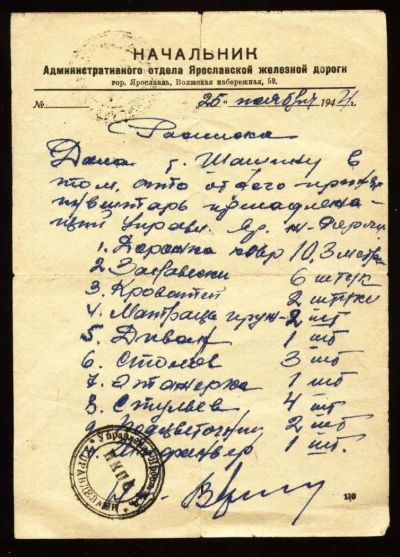 НАЧАЛЬНИК
Административного отдела Ярославской железной дороги
гор. Ярославль, Волжская набережная, 59.
№ 25 ноября 194
Расписка
Дана г. Шашину в
том, что от него принят
инвентарь принадлежа-
щий Управ. Яр. ж-дороги
1. Дорожка ковр 10,3 метра
2. Занавески 6 штук
3. Кроватей 2 штуки
4. Матраца пруж- 2 шт
5. Диван 1 шт
6. Столов 3 шт
7. Этажерка 1 шт
8. Стульев 4 шт
9. Подцветочник 2 шт
1 шт.
110